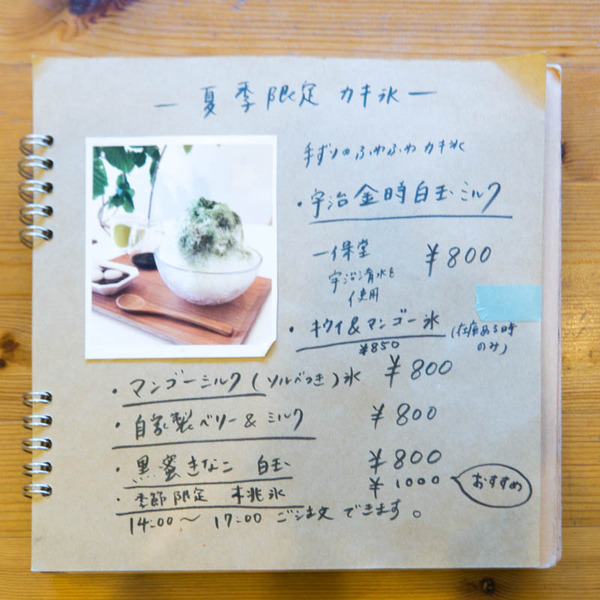 — 夏季限定 カキ氷 —
手ずりのふわふわ カキ氷
・宇治金時白玉ミルク
一保堂 ¥800
宇治清水を
使用
・キウイ&マンゴー氷 (在庫ある時
のみ)
¥850
・マンゴーミルク(ソルベつき)氷 ¥800
・自家製ベリー&ミルク ¥800
・黒蜜きなこ 白玉 ¥800
・季節限定 桃氷 ¥1000 おすすめ
14:00〜17:00 ご注文できます。